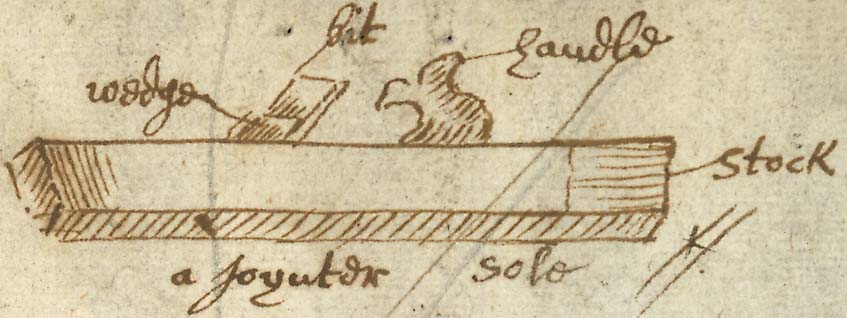 bit
handle
wedge
stock
a Joynter
sole